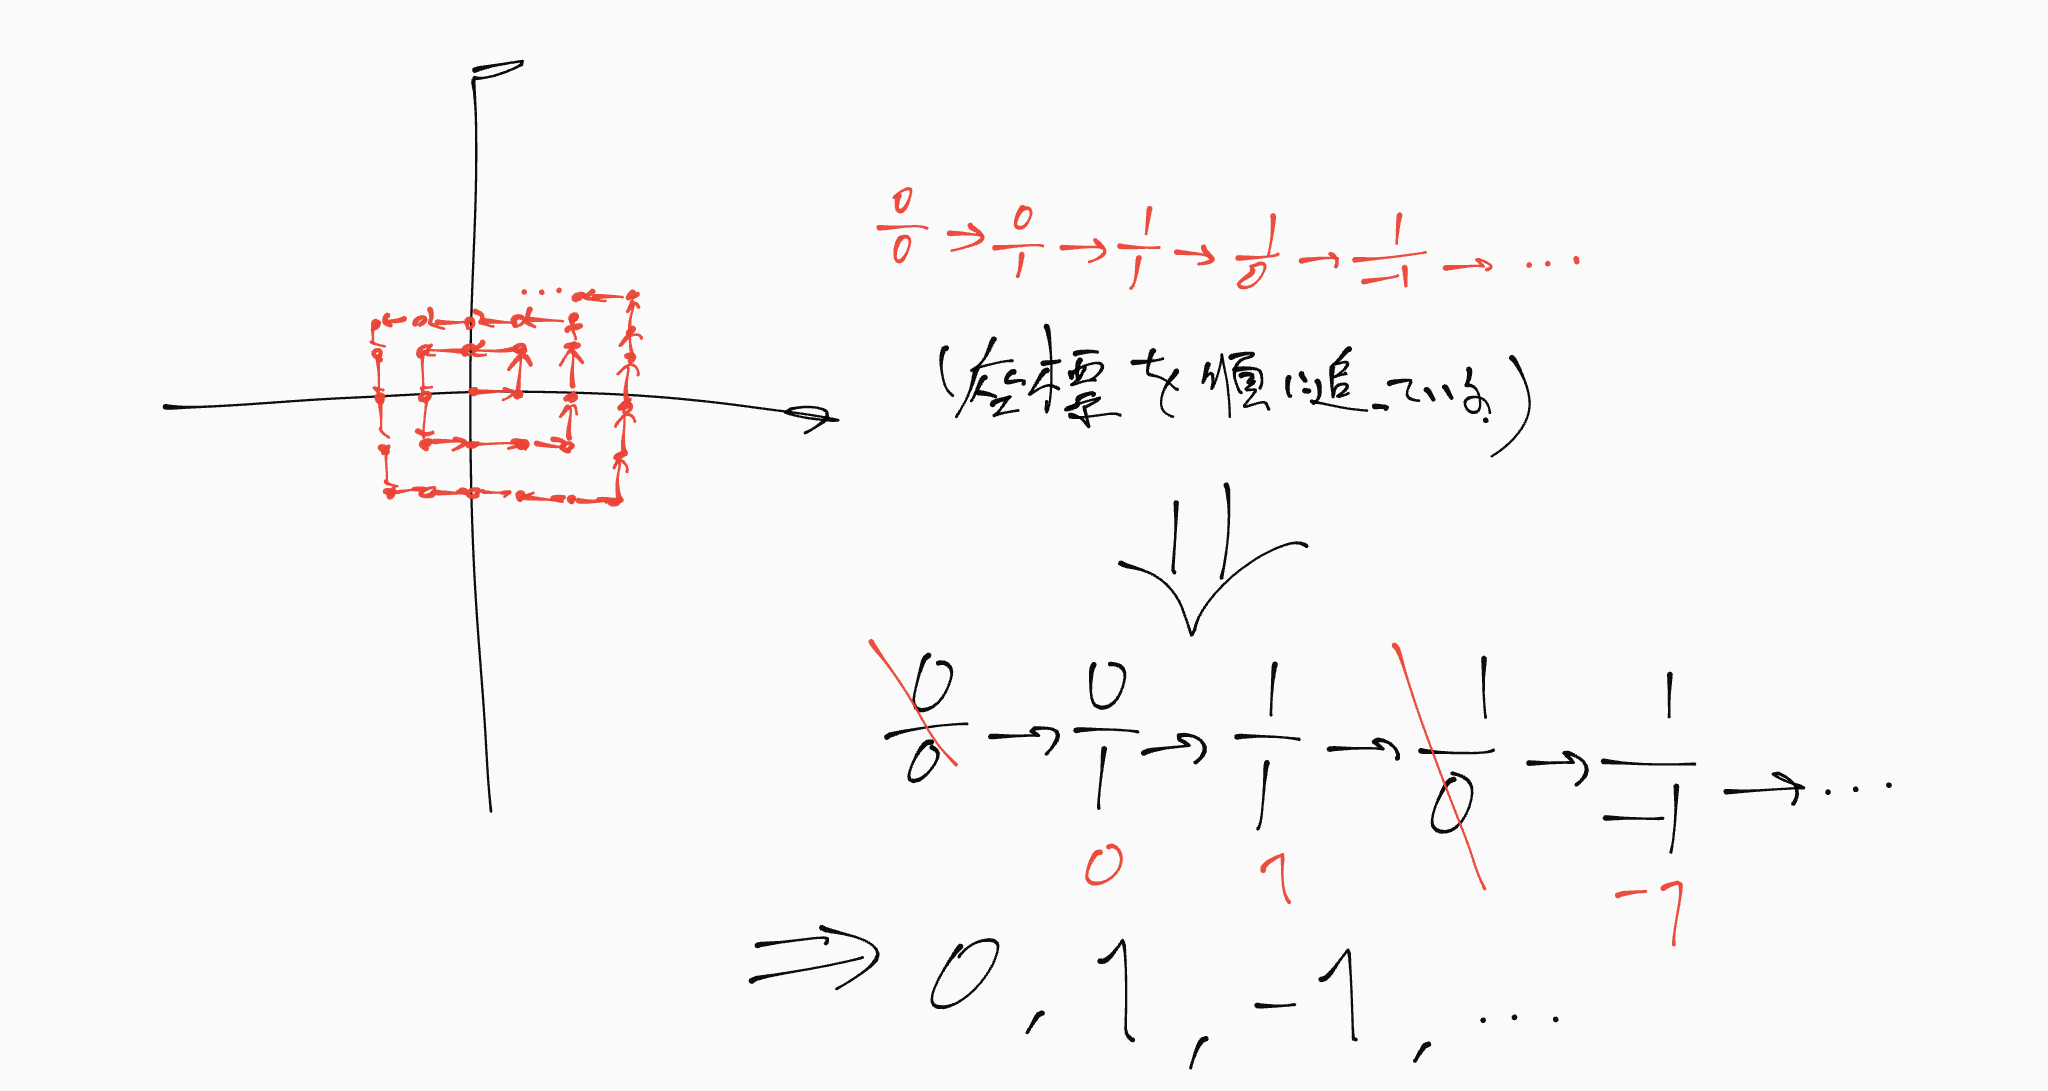 0/0 → 0/1 → 1/1 → 1/0 → 1/-1 → ...
...
(座標を順に追っている)
0/0 → 0/1 → 1/1 → 1/0 → 1/-1 → ...
0 1 -1
⇒ 0, 1, -1, ...